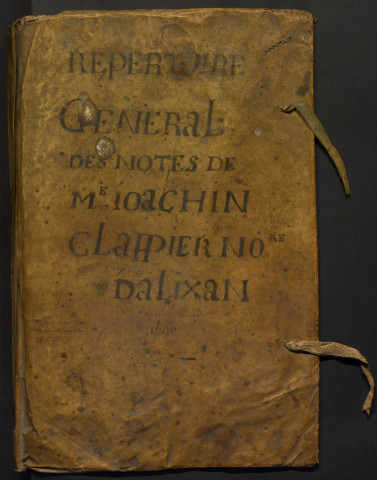 REPERTOIRE
GENERAL
DES NOTES DE
Mᴱ IOACHIN
CLAPPIER NOᴿᴱ
DALIXAN